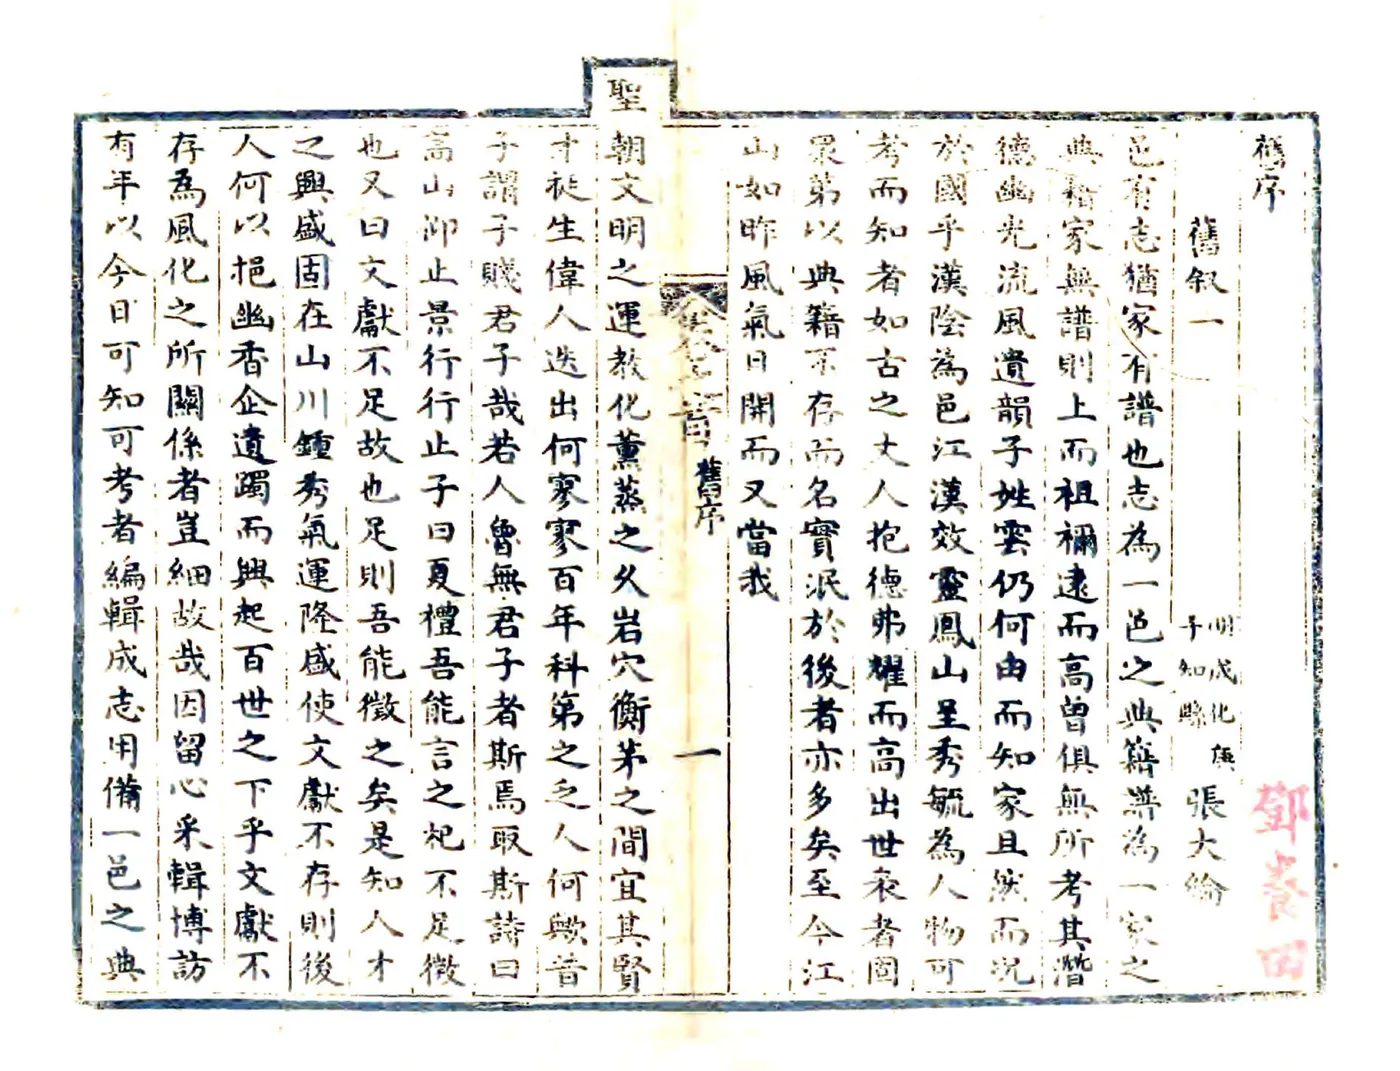 舊序
舊叙一
明成化庚
子知縣
張大綸
邑有志猶家有譜也志為一邑之典籍譜為一家之
典籍家無譜則上而祖禰逮而高曾俱無所考其潛
德幽光流風遺韻子姓雲仍何由而知家且然而况
於國乎漢陰為邑江漢效靈鳳山呈秀毓為人物可
考而知者如古之丈人抱德弗耀而高出世表者固
眾第以典籍不存而名實泯於後者亦多矣至今江
山如昨風氣日開而又當我
舊序
一
聖朝文明之運教化薰蒸之久岩穴衡茅之間宜其賢
才挺生偉人迭出何寥寥百年科第之乏人何歟昔
子謂子賤君子哉若人魯無君子者斯焉取斯詩曰
高山仰止景行行止子曰夏禮吾能言之杞不足徵
也又曰文獻不足故也足則吾能徵之矣是知人才
之興盛固在山川鍾秀氣運隆盛使文獻不存則後
人何以挹幽香企遺躅而興起百世之下乎文獻不
存為風化之所關係者豈細故哉因留心采輯博訪
有年以今日可知可考者編輯成志用備一邑之典
鄧養田